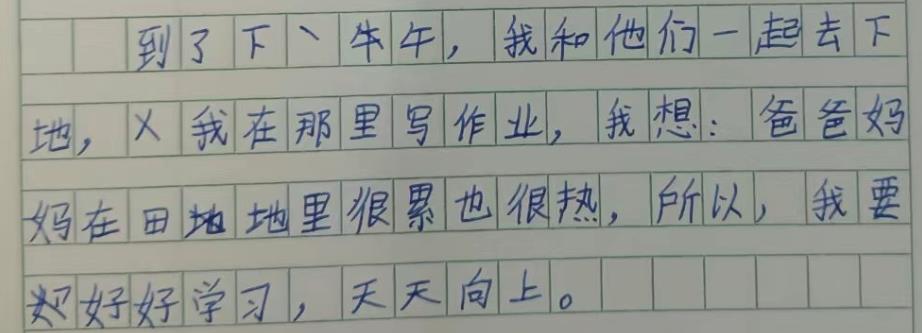 到了下丶牛午，我和他们一起去下
地，乂我在那里写作业，我想：爸爸妈
妈在田地地里狠累也很热，所以，我要
好好学习，天天向上。